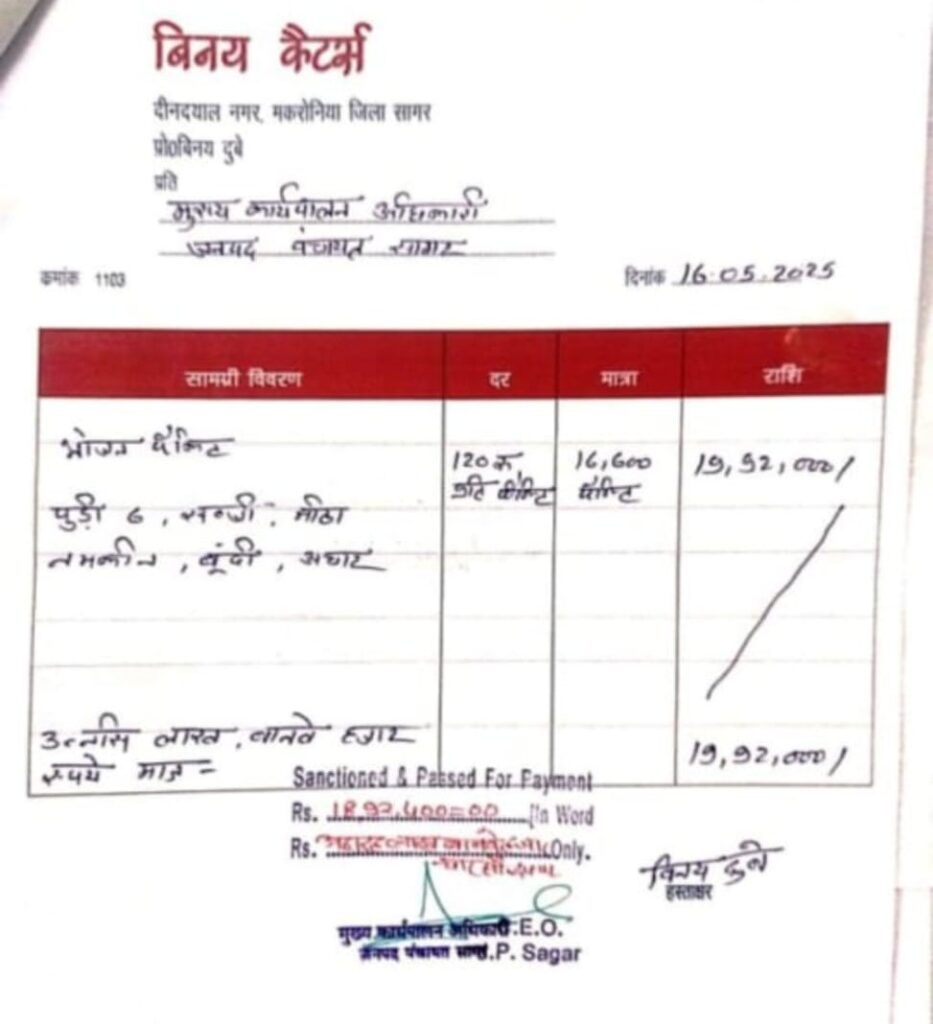 बिनय कैटर्स
दीनदयाल नगर, मकरोनिया जिला सागर
प्रो0बिनय दुबे
प्रति
मुख्य कार्यपालन अधिकारी
जनपद पंचायत सागर
क्रमांक 1103
दिनांक 16.05.2025
सामग्री विवरण दर मात्रा राशि
भोजन पैकिट 120 रू 16,600 19,92,000/
प्रति पैकिट पैकिट
पुड़ी 6, सब्जी, मीठा
नमकीन, बूंदी, अचार
उन्नीस लाख, वानवे हजार
रूपये मात्र - 19,92,000/
Sanctioned & Passed For Payment
Rs. 18,92,400=00 (In Word
Rs. अठारह लाख बानवे हजार Only.
चार सौ रूपये
विनय दुबे
हस्ताक्षर
मुख्य कार्यपालन अधिकारी.E.O.
जनपद पंचायत सागर.P. Sagar